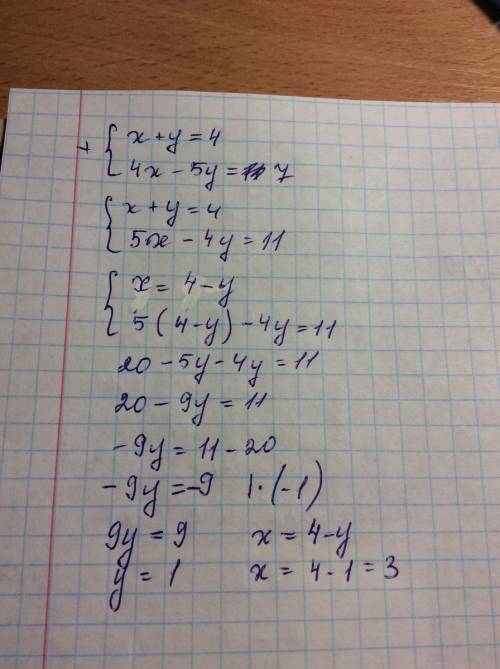 + { x + y = 4
4x - 5y = 7
{ x + y = 4
5x - 4y = 11
{ x = 4 - y
5(4 - y) - 4y = 11
20 - 5y - 4y = 11
20 - 9y = 11
-9y = 11 - 20
-9y = -9 | · (-1)
9y = 9 x = 4 - y
y = 1 x = 4 - 1 = 3